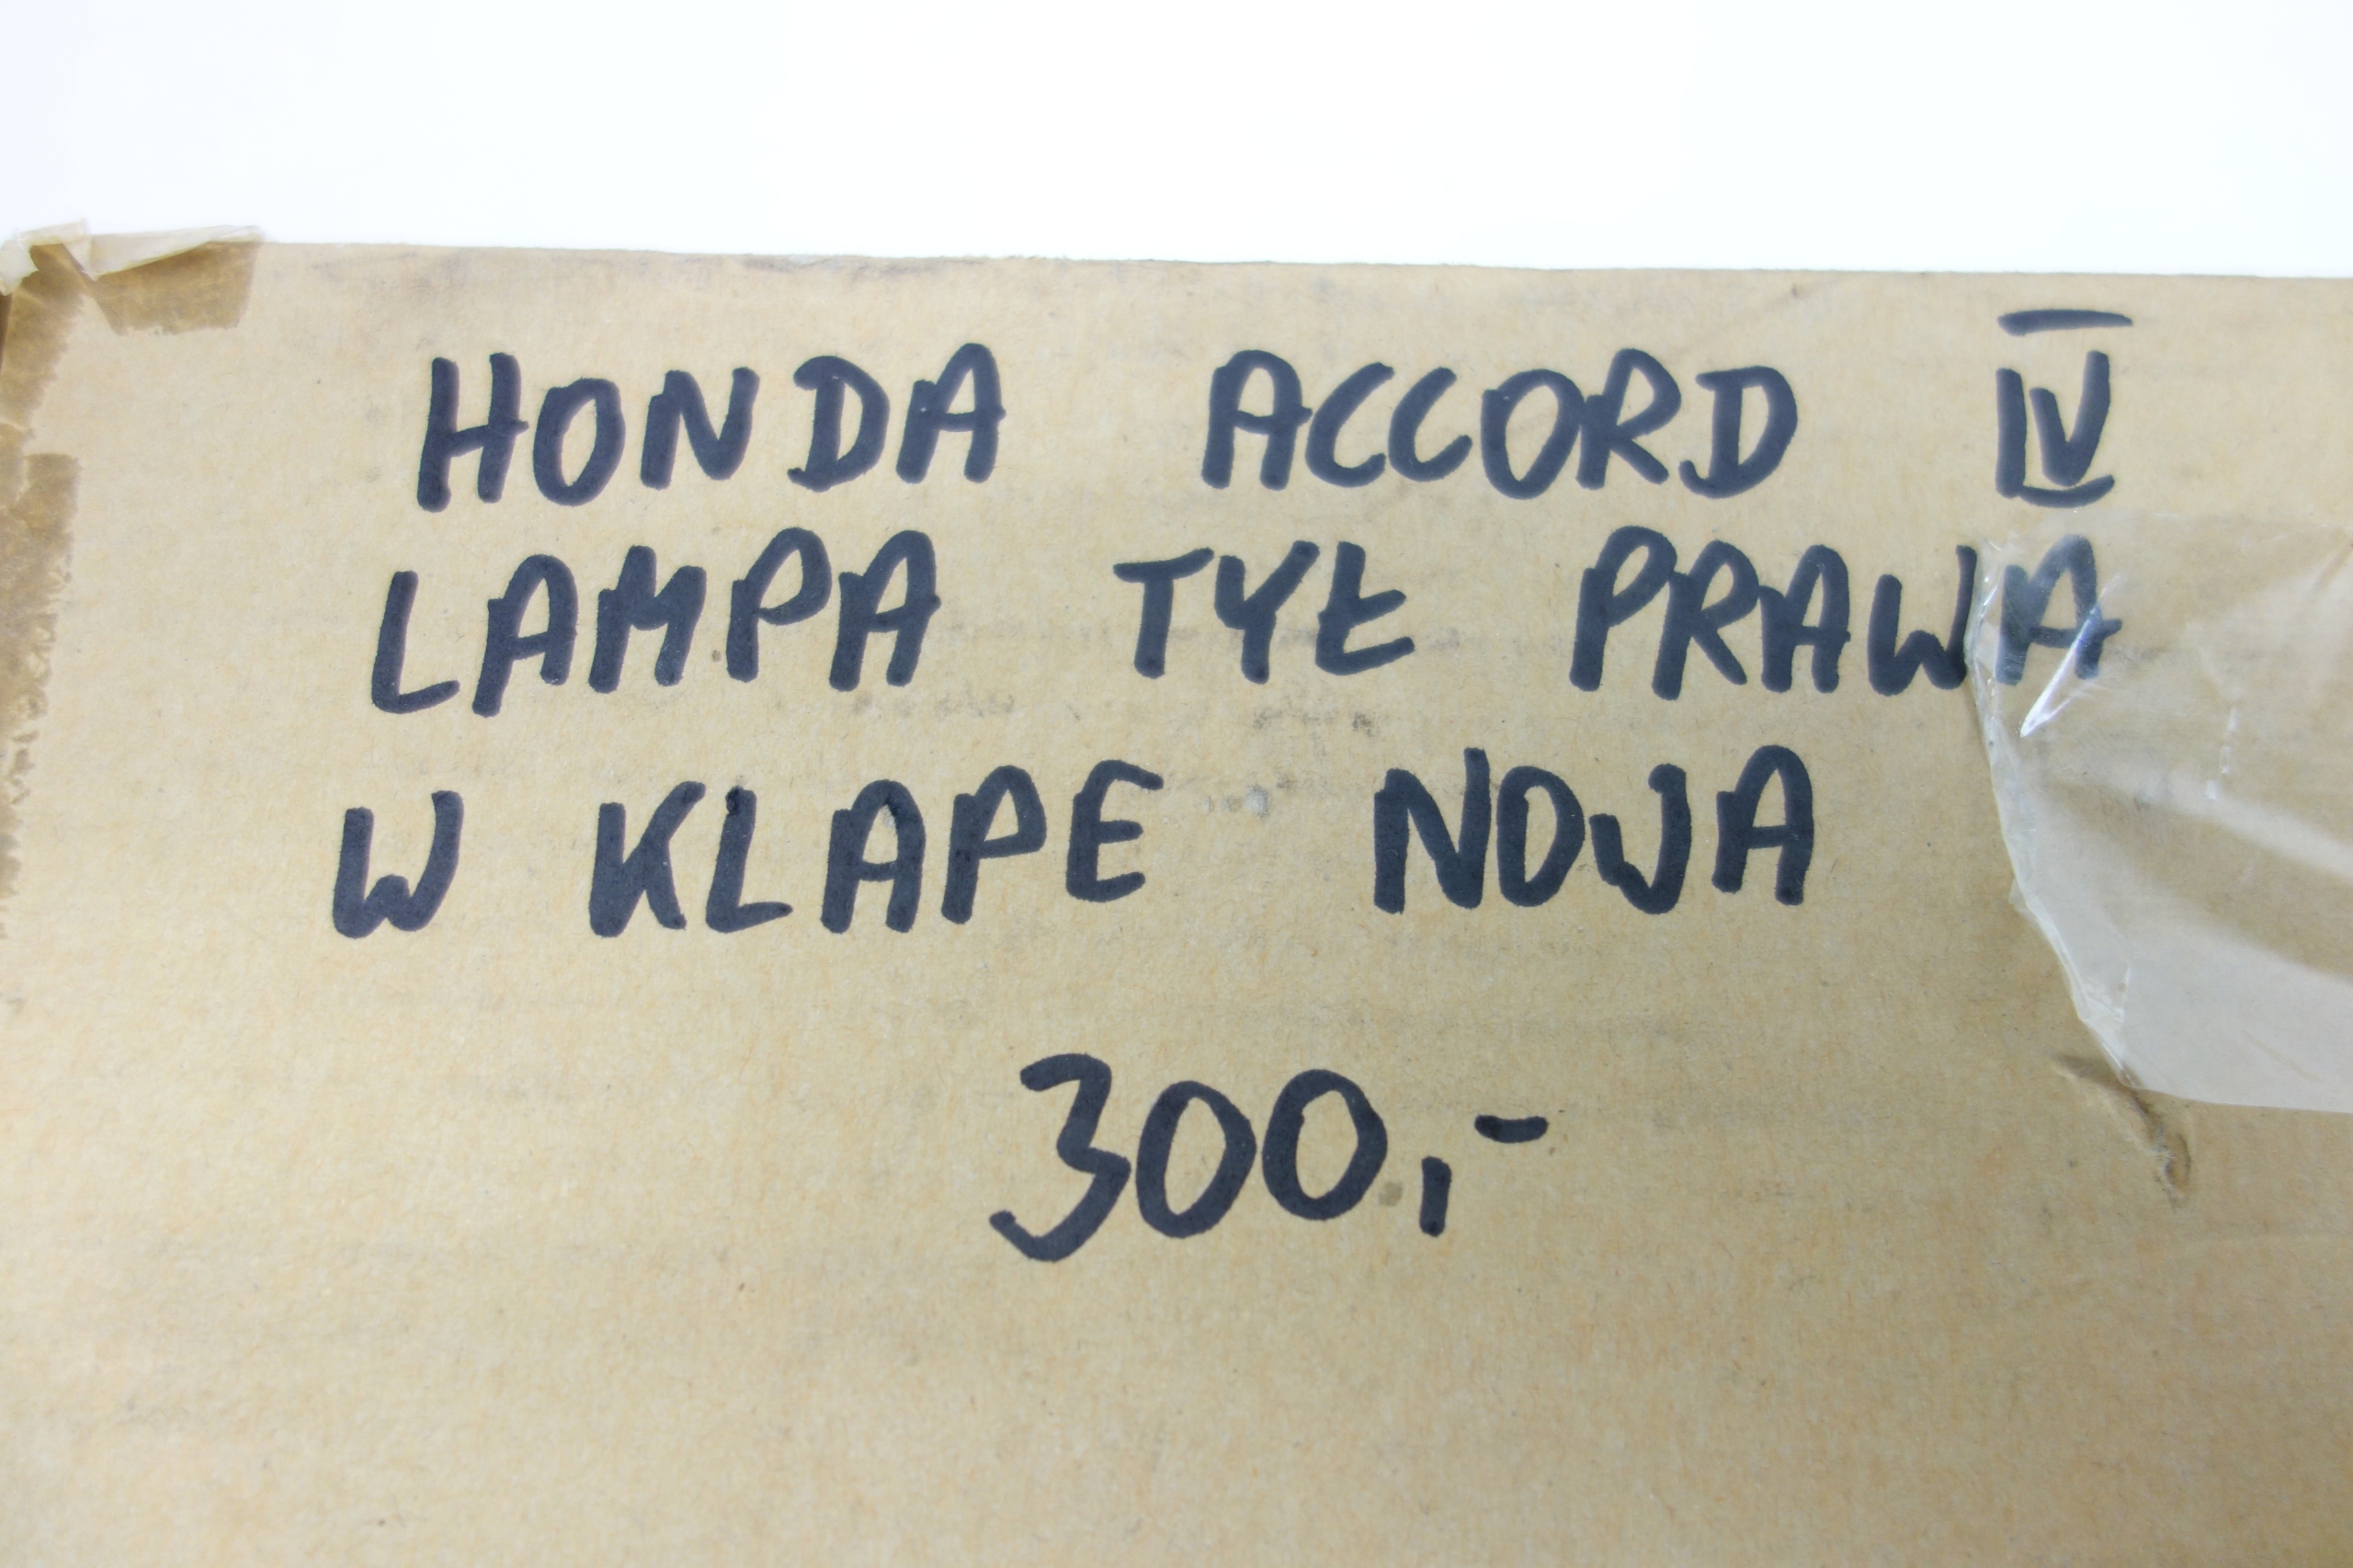 HONDA ACCORD IV
LAMPA TYŁ PRAWA
W KLAPE NOWA
300,-